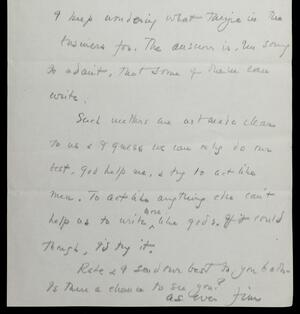 I keep wondering what they're in the
business for. The answer is, I'm sorry
to admit, that some of them can
write.
Such matters are not made clear
to us & I guess we can only do our
best, God help us, & try to act like
men. To act like anything else can't
help us to write, like gods. If it could
though, I'd try it.
& I send our best to you both.
Is there a chance to see you?
as ever Jim